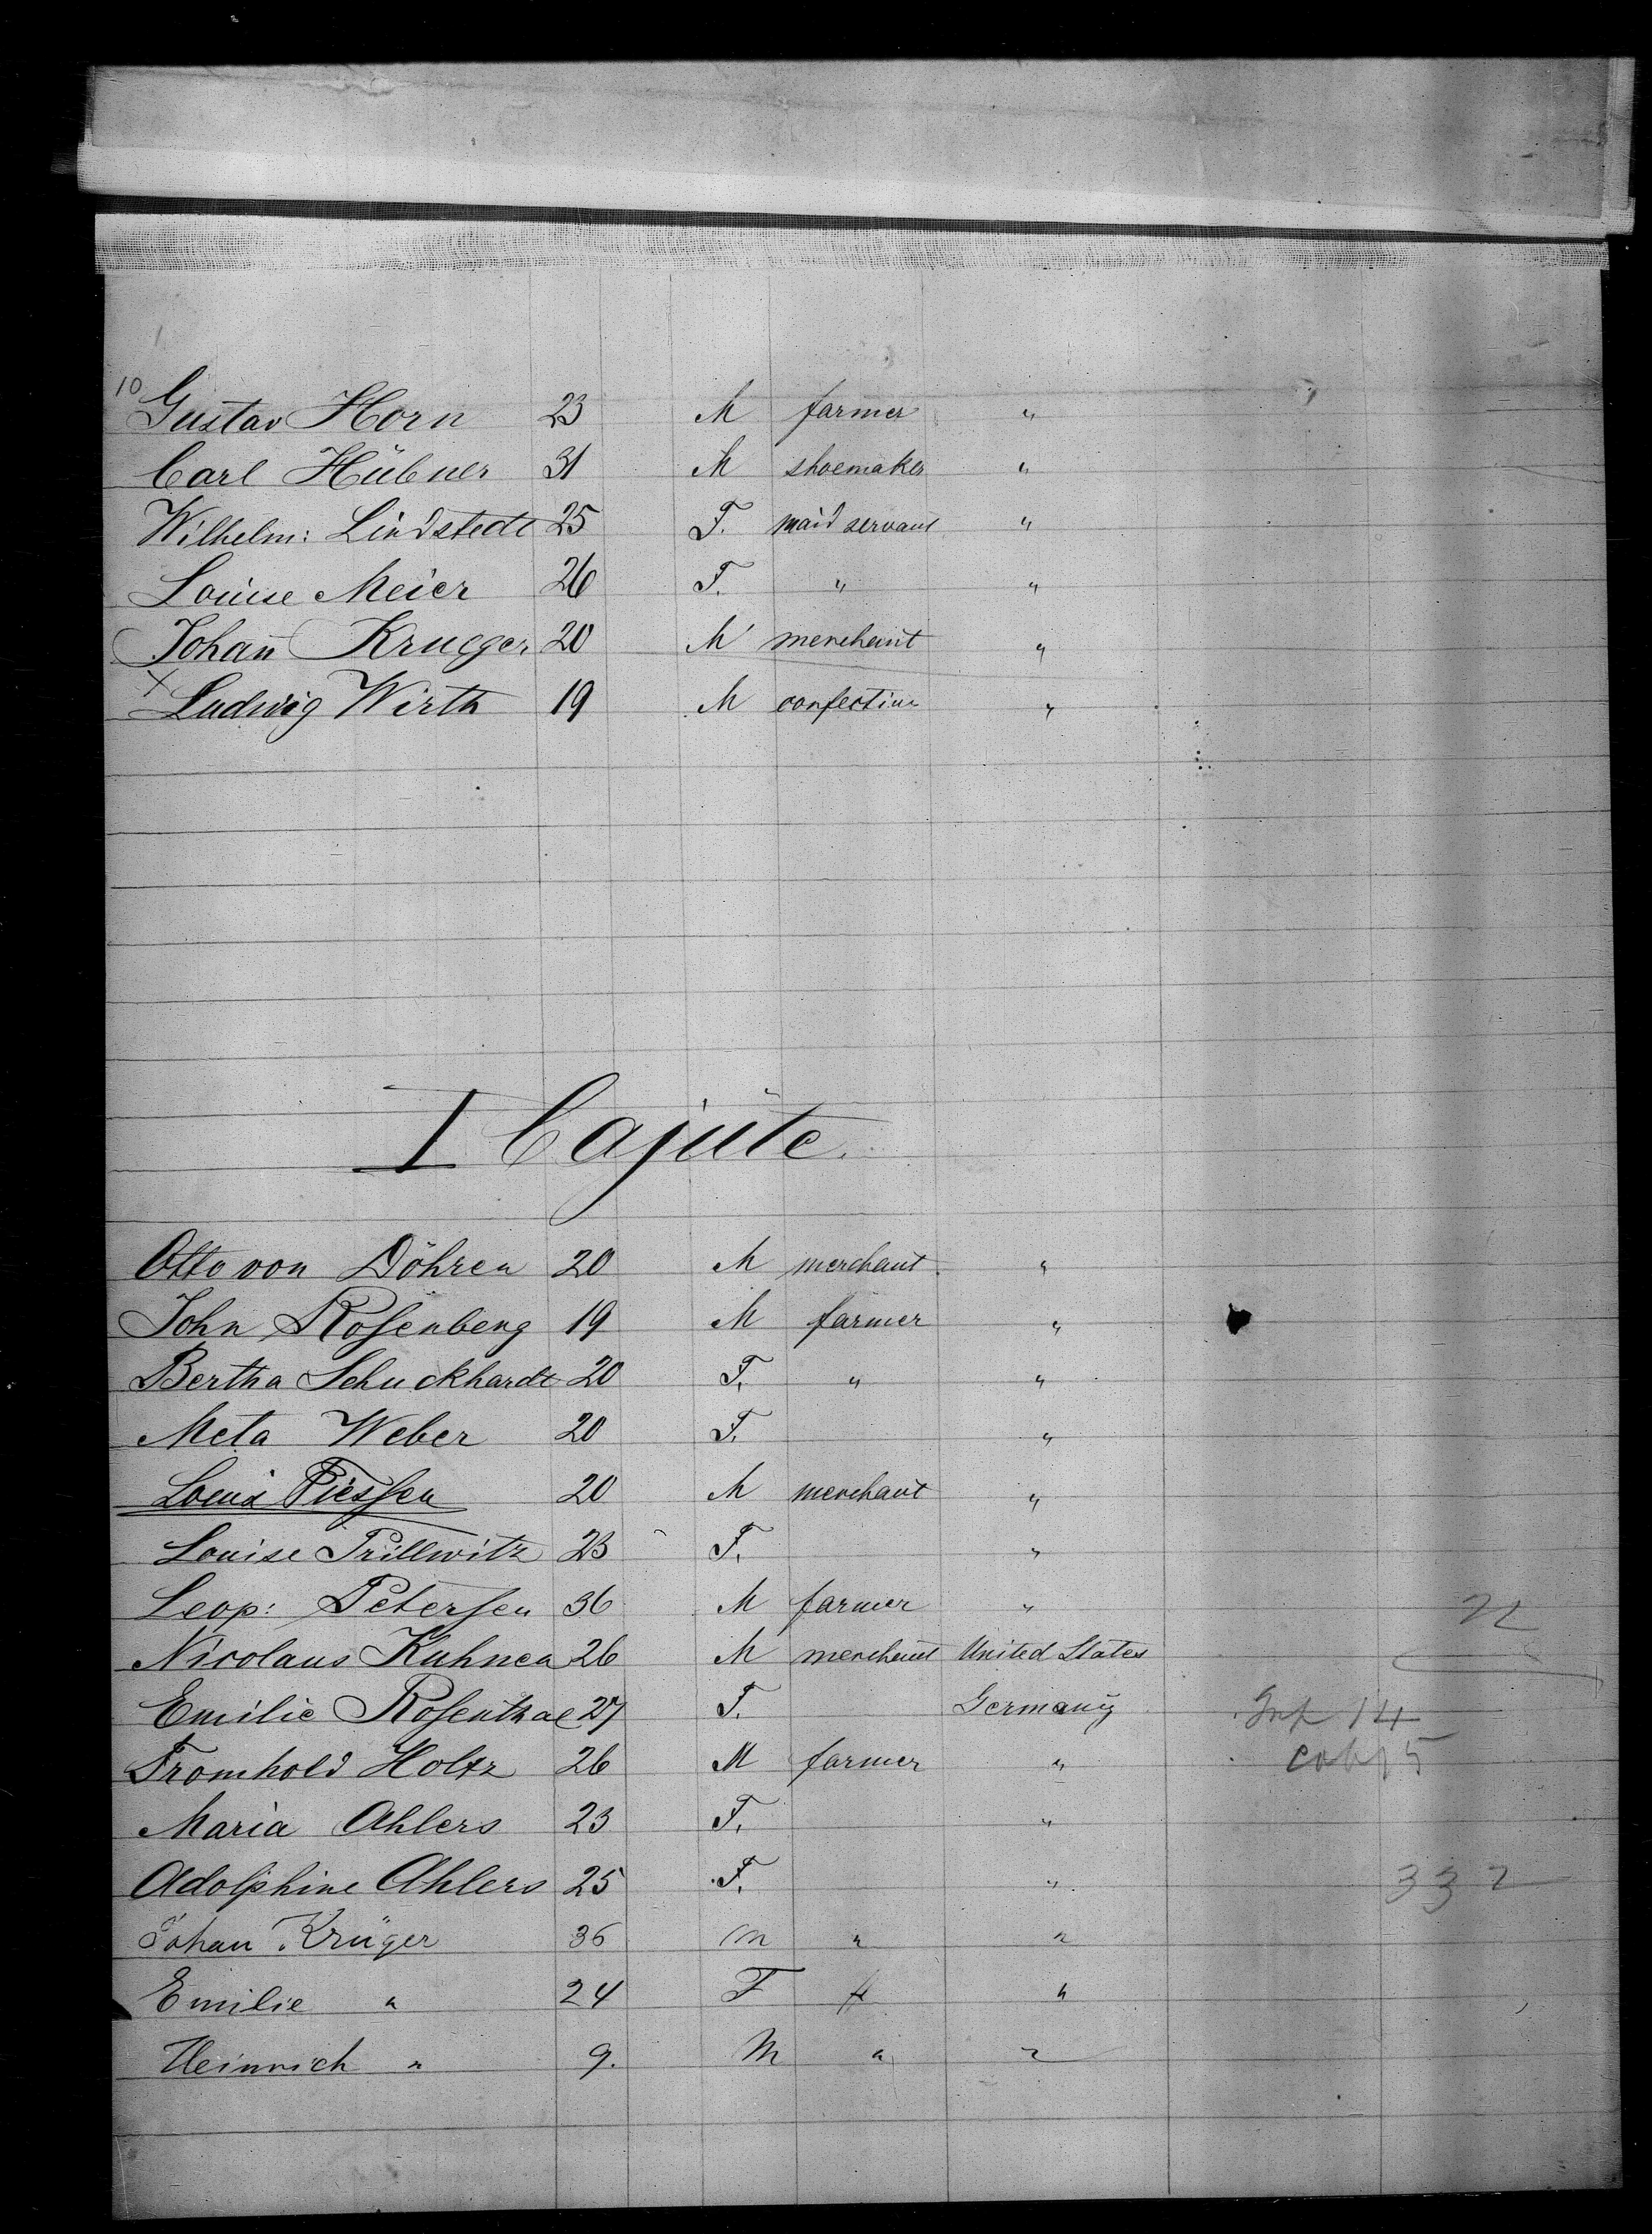 10
Gustav Horn 23 M farmer "
Carl Hübner 31 M shoemaker "
Wilhelm: Lindstedt 25 F. maid servant "
Louise Meier 26 F. " "
Johan̄ Krugger 20 M merchant "
X Ludwig Wirth 19 M "
I Cajüte
Otto von Döhren 20 M merchant "
John Rosenberg 19 M farmer "
Bertha Schuckhardt 20 F. " "
Meta Weber 20 F. "
Louis 20 M merchant "
Louise Prillwitz 23 F. "
Leop: Petersen 36 M farmer "
Nicolaus Kuhnen 26 M merchant United States
Emilie Rosenthal 27 F. Germany 14
Tromhold Holtz 26 M farmer "
Maria Ahlers 23 F. "
Adolphine Ahlers 25 F. " 332
Johan Krüger 36 M " "
Emilie " 24 F " "
Heinrich " 9. M " "